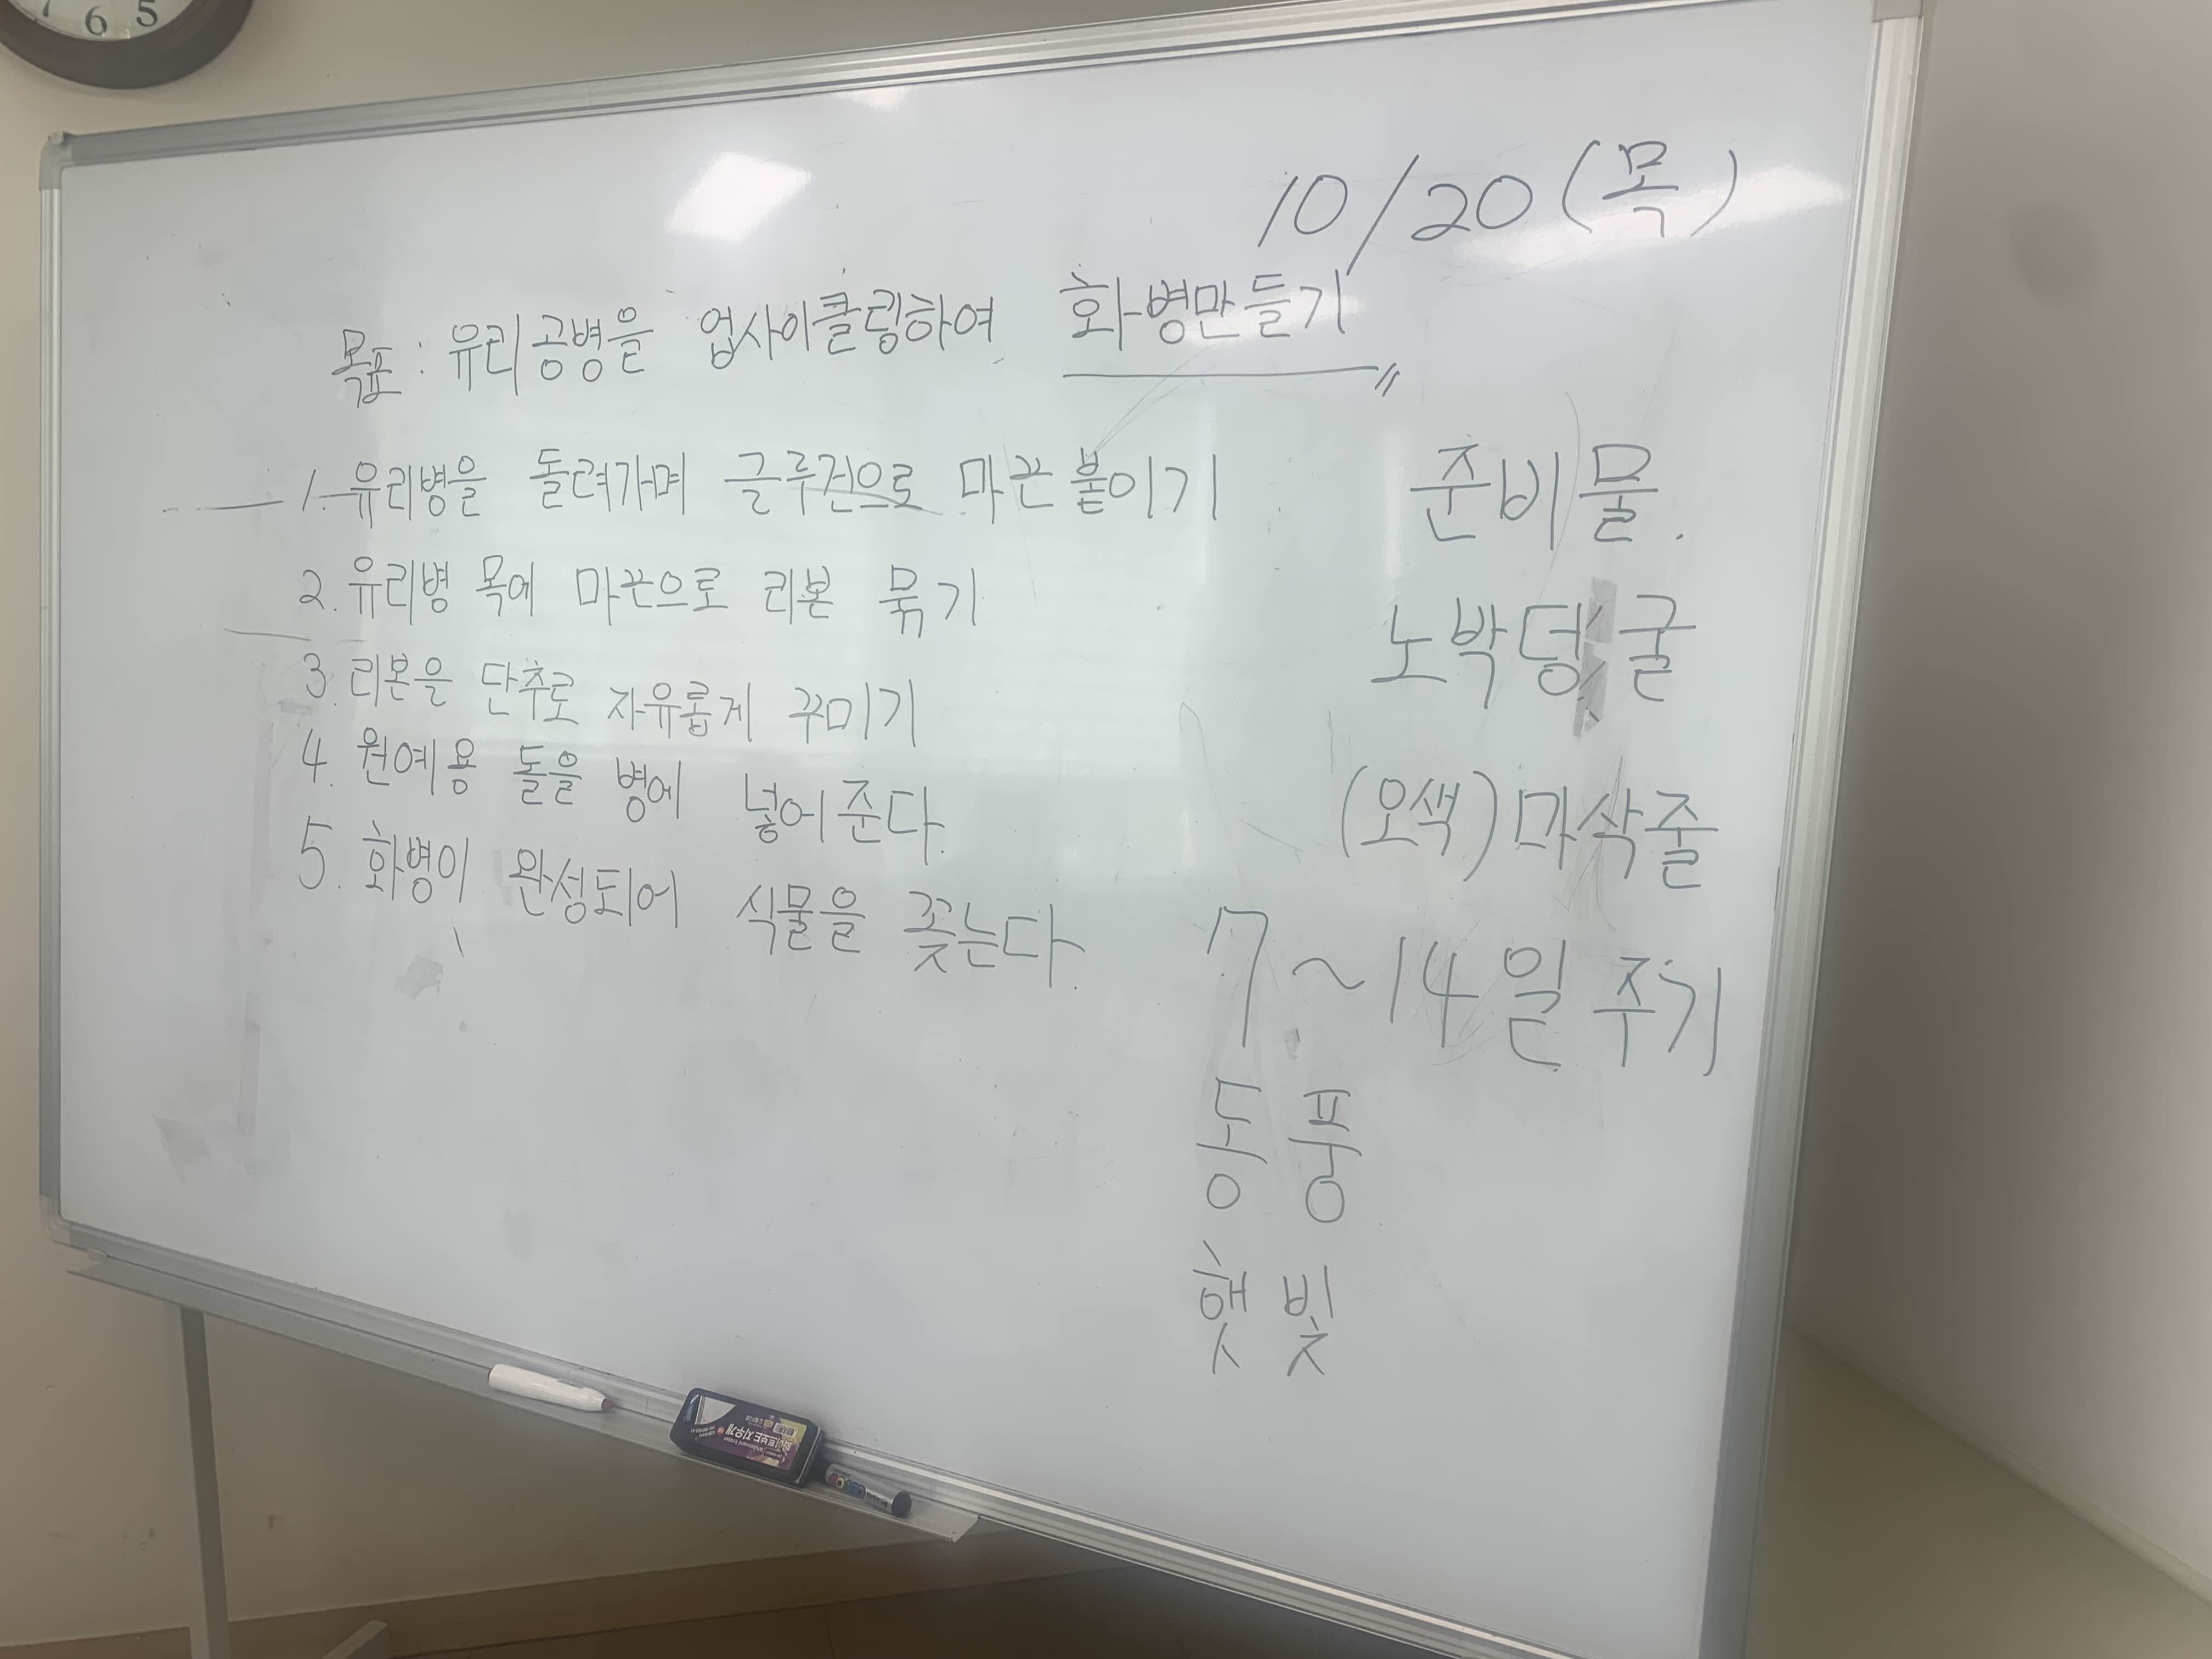 6 5
10/20(목)
목표 : 유리공병을 업사이클링하여 화병만들기
1. 유리병을 돌려가며 글루건으로 마끈 붙이기
2. 유리병 목에 마끈으로 리본 묶기
3. 리본을 단추로 자유롭게 꾸미기
4. 원예용 돌을 병에 넣어준다.
5. 화병이 완성되어 식물을 꽂는다.
준비물.
노박덩굴
(오색)마삭줄
7~14일 주기
통풍
햇빛